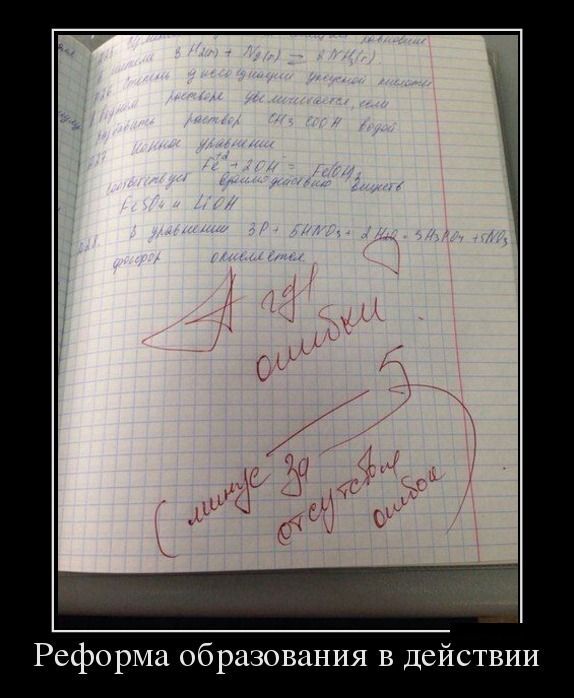 в 3 H2(г) + N2(г) = 2 NH3(г).
Степень диссоциации уксусной кислоты
в водном растворе увеличивается, если
разбавить раствор CH3COOH водой
Ионное уравнение
Fe+2 + 2OH- = Fe(OH)2
соответствует взаимодействию веществ
FeSO4 и LiOH
В уравнении 3P + 5HNO3 + 2H2O = 3H3PO4 + 5NO
фосфор окисляется
А где
ошибки
5
(минус за
отсутствие
ошибок
Реформа образования в действии